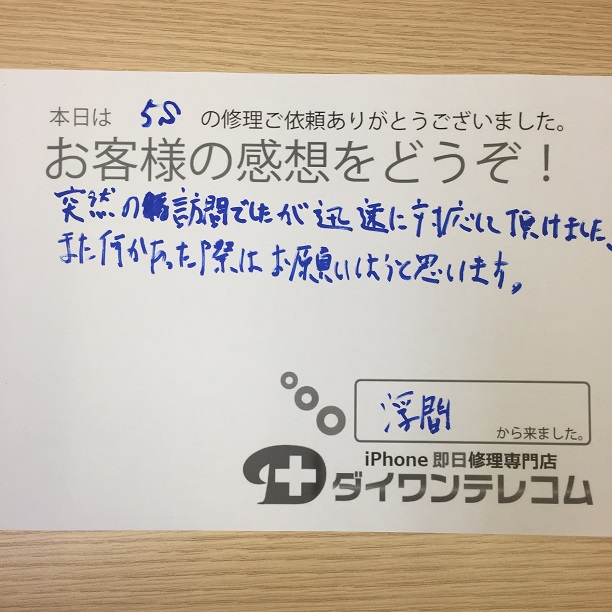 本日は 5S の修理ご依頼ありがとうございました。
お客様の感想をどうぞ!
突然の訪問でしたが迅速に対応して頂けました、
また何かあった際はお願いしようと思います。
浮間 から来ました。
iPhone 即日修理専門店
ダイワンテレコム